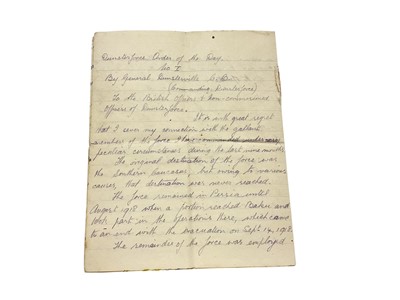 Dunsterforce Order of the Day.
No I
By General Dunsterville C.B.
(Commanding Dunsterforce)
To the British Officers & Non-commissioned
Officers of Dunsterforce.
It is with great regret
that I sever my connection with the gallant
members of the force I have commanded under very
peculiar circumstances during the last nine months.
The original destination of the force was
the Southern Caucasus, but owing to various
causes, that destination was never reached.
The force remained in Persia until
August 1918 when a portion reached Baku and
took part in the operations there, which came
to an end with the evacuation on Sept. 14, 1918.
The remainder of the force was employed